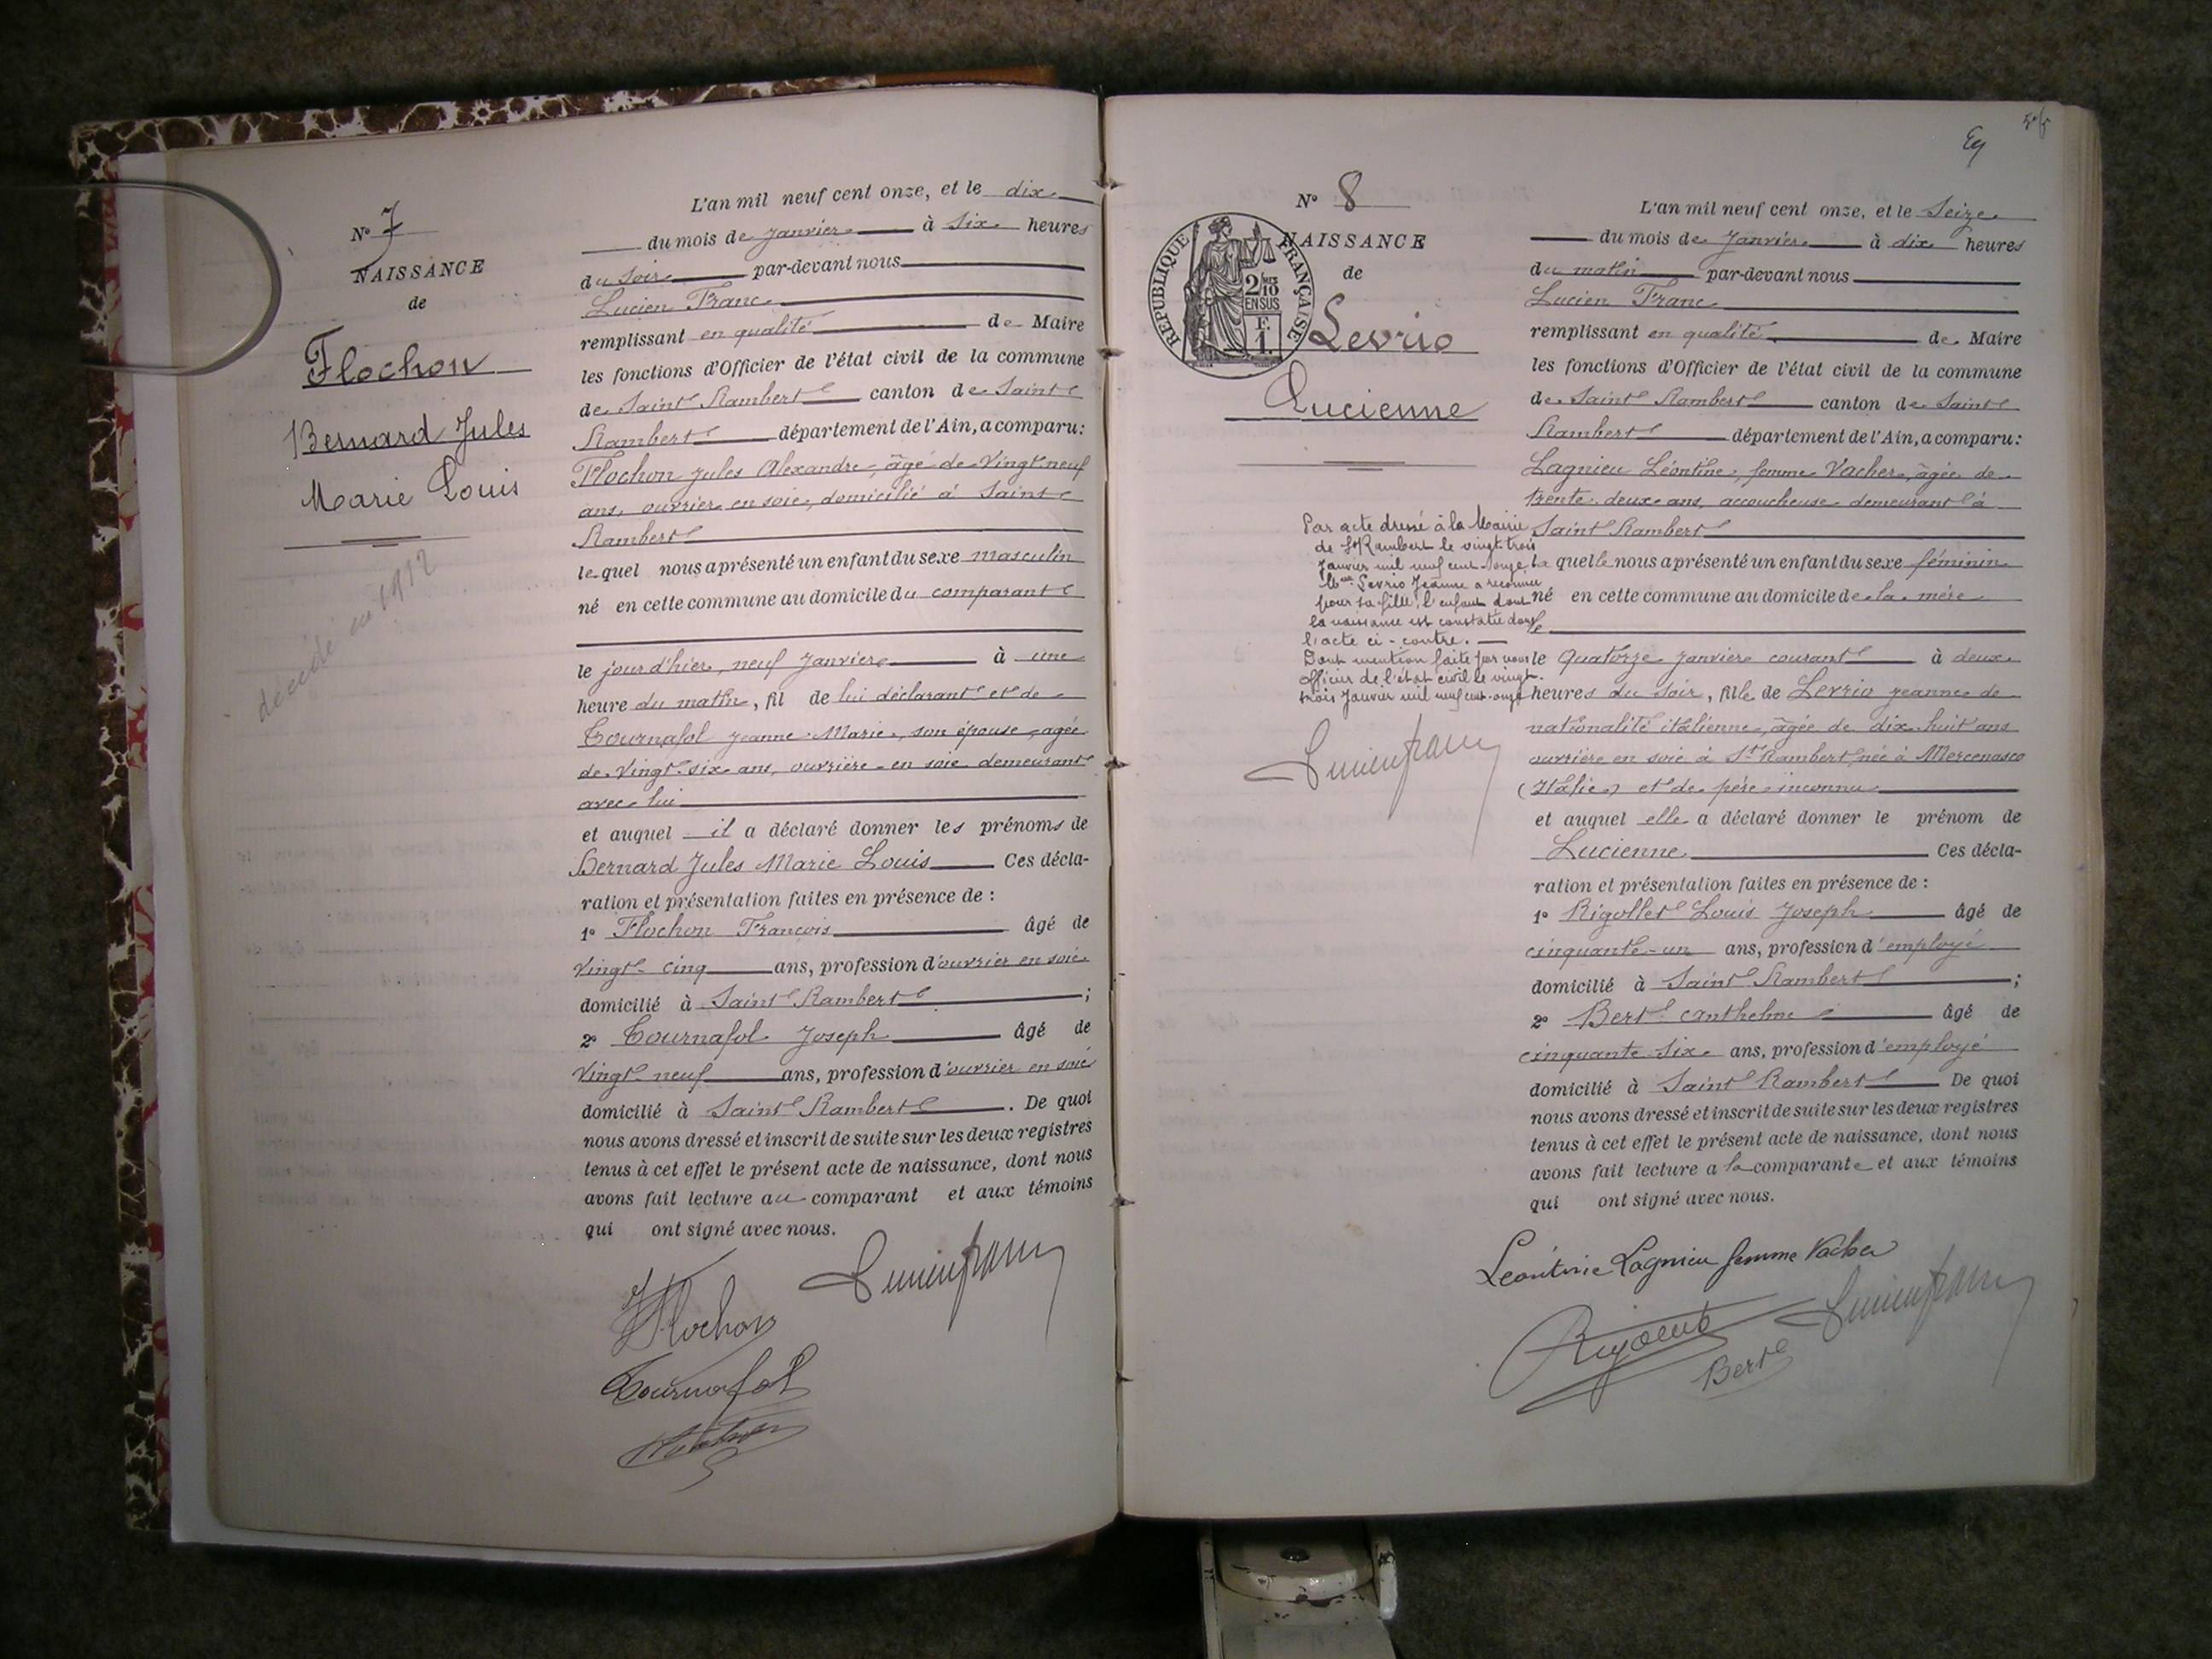 N° 7
NAISSANCE
de
Flochon
Bernard Jules
Marie Louis
décédé en 1912
L'an mil neuf cent onze, et le dix
du mois de Janvier à six heures
du soir par-devant nous
Lucien Franc
remplissant en qualité de Maire
les fonctions d'Officier de l'état civil de la commune
de Saint Rambert canton de Saint
Rambert département de l'Ain, a comparu:
Flochon Jules Alexandre, âgé de Vingt neuf
ans, ouvrier en soie, domicilié à Saint
Rambert
lequel nous a présenté un enfant du sexe masculin
né en cette commune au domicile du comparant
le jour d'hier, neuf Janvier à une
heure du matin, fil de lui déclarant et de
Tournafol Jeanne Marie, son épouse, agée
de Vingt-six ans, ouvrière en soie demeurant
avec lui
et auquel il a déclaré donner les prénoms de
Bernard Jules Marie Louis Ces décla-
ration et présentation faites en présence de :
1° Flochon Francois âgé de
Vingt-cinq ans, profession d'ouvrier en soie
domicilié à Saint Rambert ;
2° Tournafol Joseph âgé de
Vingt-neuf ans, profession d'ouvrier en soie
domicilié à Saint Rambert . De quoi
nous avons dressé et inscrit de suite sur les deux registres
tenus à cet effet le présent acte de naissance, dont nous
avons fait lecture au comparant et aux témoins
qui ont signé avec nous.
Lucien franc
Flochon
Tournafol
54
N° 8
RÉPUBLIQUE FRANÇAISE
2/10 MES
EN SUS
F.
1.
NAISSANCE
de
Levrio
Lucienne
Par acte dressé à la Mairie
de St Rambert le vingt-trois
Janvier mil neuf cent-onze
Mlle Levrio Jeanne a reconnu
pour sa fille, l'enfant dont
la naissance est constatée dans
l'acte ci-contre.
Dont mention faite par nous
officier de l'état civil le vingt-
trois Janvier mil neuf cent-onze
Lucien franc
L'an mil neuf cent onze, et le Seize
du mois de Janvier à dix heures
du matin par-devant nous
Lucien Franc
remplissant en qualité de Maire
les fonctions d'Officier de l'état civil de la commune
de Saint Rambert canton de Saint
Rambert département de l'Ain, a comparu:
Lagnieu Léontine, femme Vacher, âgée de
trente-deux ans, accoucheuse demeurant à
Saint Rambert
la quelle nous a présenté un enfant du sexe féminin
né en cette commune au domicile de la mère
le Quatorze Janvier courant à deux
heures du soir, fille de Levrio Jeanne de
nationalité italienne, âgée de dix huit ans
ouvrière en soie à St Rambert, née à Mercenasco
(Italie) et de père inconnu
et auquel elle a déclaré donner le prénom de
Lucienne Ces décla-
ration et présentation faites en présence de :
1° Rigollet Louis Joseph âgé de
cinquante-un ans, profession d'employé
domicilié à Saint Rambert ;
2° Bert Anthelme âgé de
cinquante six ans, profession d'employé
domicilié à Saint Rambert De quoi
nous avons dressé et inscrit de suite sur les deux registres
tenus à cet effet le présent acte de naissance, dont nous
avons fait lecture a la comparante et aux témoins
qui ont signé avec nous.
Léontine Lagnieu femme Vacher
Lucien franc
Bert